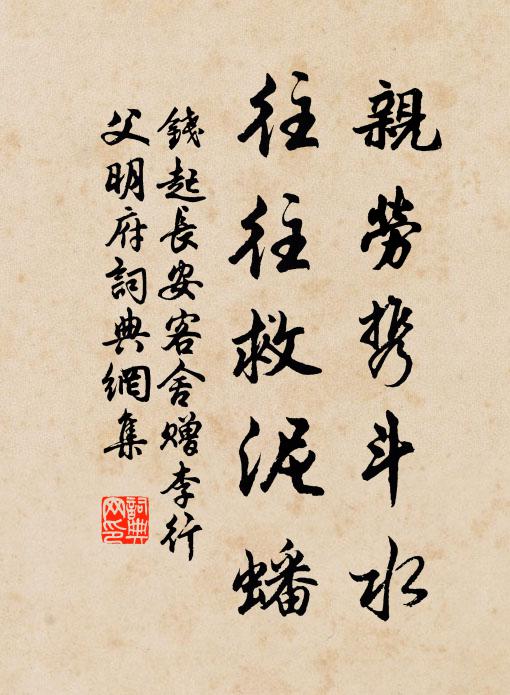 親勞携斗水
往往救泥蟠
錢起長安客舍贈李行
父明府詞典網集
詞典網印